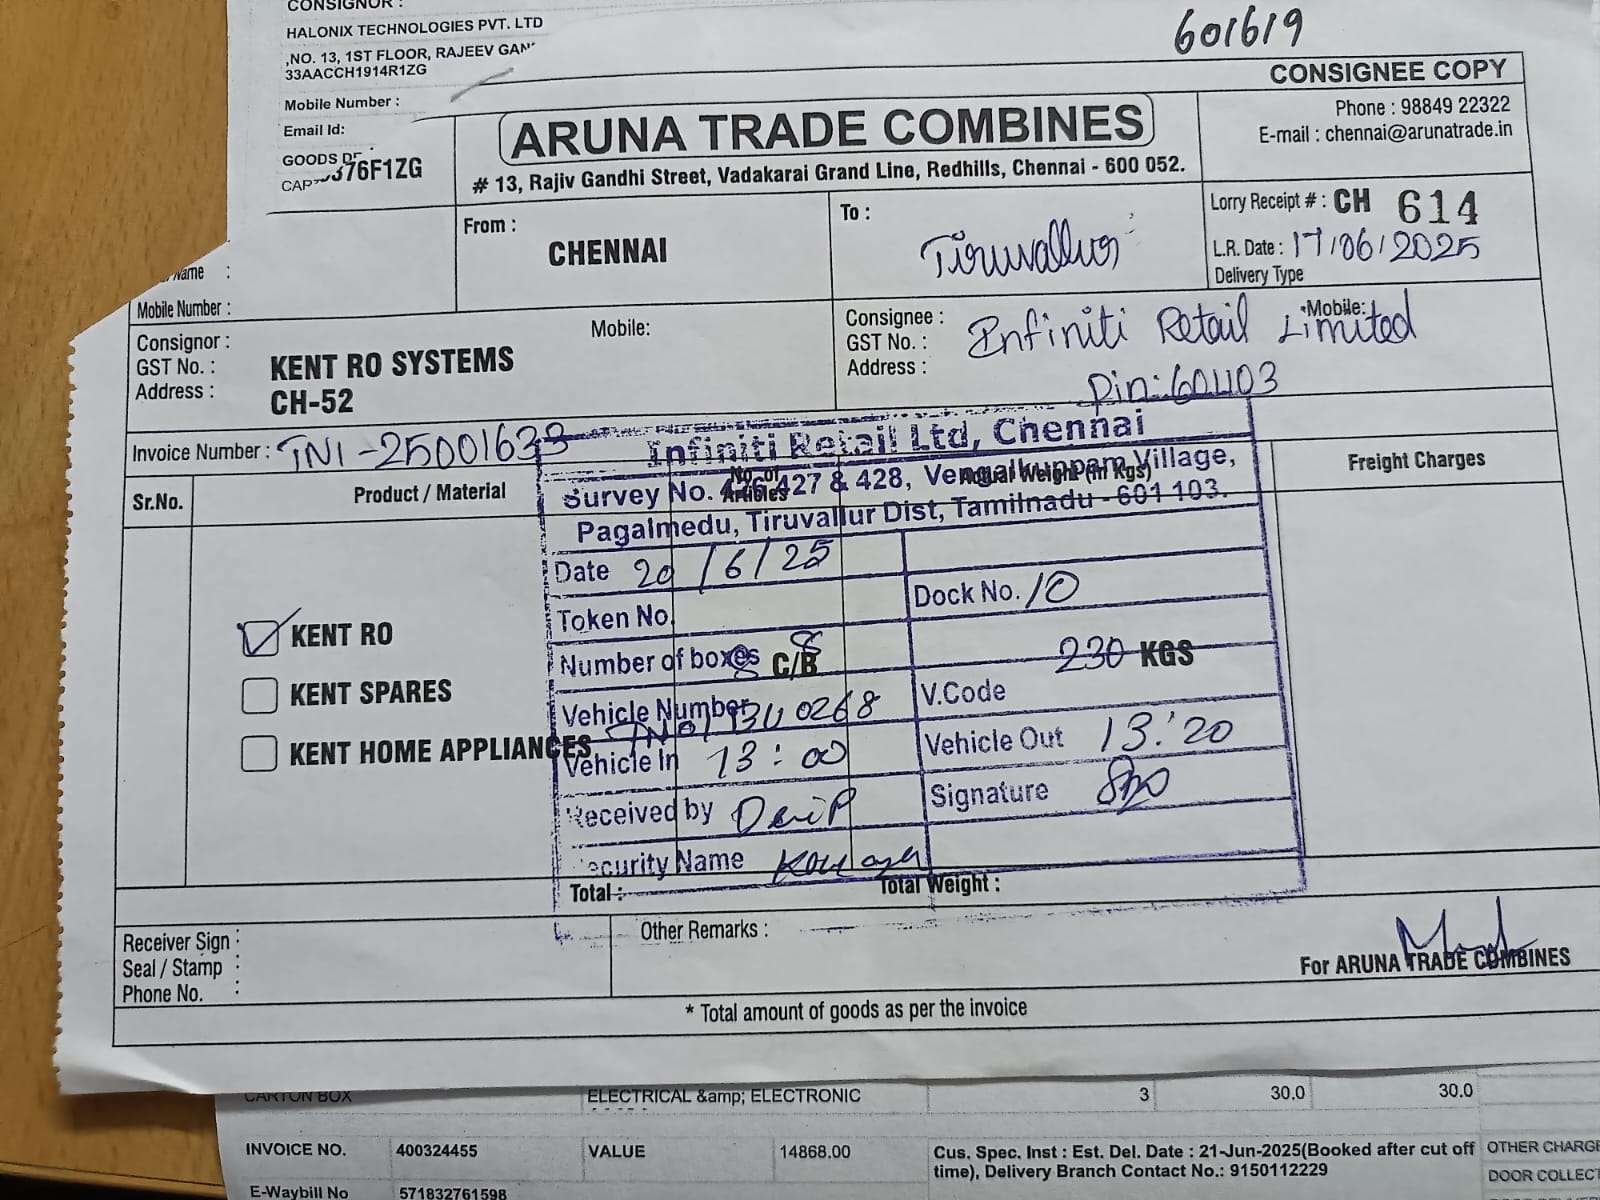 CONSIGNOR :
HALONIX TECHNOLOGIES PVT. LTD
,NO. 13, 1ST FLOOR, RAJEEV GAN
33AACCH1914R1ZG
Mobile Number :
Email Id:
GOODS DE
CAP
376F1ZG
Name :
Mobile Number :
601619
CONSIGNEE COPY
ARUNA TRADE COMBINES
# 13, Rajiv Gandhi Street, Vadakarai Grand Line, Redhills, Chennai - 600 052.
Phone : 98849 22322
E-mail : chennai@arunatrade.in
From :
CHENNAI
To :
Tiruvallur
Lorry Receipt # : CH 614
L.R. Date : 17/06/2025
Delivery Type
Consignor :
GST No. :
Address :
Mobile:
KENT RO SYSTEMS
CH-52
Consignee :
GST No. :
Address :
Mobile:
Infiniti Retail Limited
Pin:
Invoice Number : TN1-25001633
Sr.No.
Product / Material
No. of Articles
Actual Weight (in Kgs)
Freight Charges
Infiniti Retail Ltd, Chennai
Survey No. 426, 427 & 428, Vengalkuppam Village,
Pagalmedu, Tiruvallur Dist, Tamilnadu - 601 103.
Date 20/6/25
Token No.
Dock No. 10
Number of boxes 8
C/B
230 KGS
Vehicle Number
0268
V.Code
Vehicle In 13:00
Vehicle Out 13:20
Received by
Signature
Security Name
KENT RO
KENT SPARES
KENT HOME APPLIANCES
Total :
Total Weight :
Receiver Sign :
Seal / Stamp :
Phone No. :
Other Remarks :
For ARUNA TRADE COMBINES
* Total amount of goods as per the invoice
CARTON BOX
ELECTRICAL &amp; ELECTRONIC
3
30.0
30.0
INVOICE NO. 400324455
VALUE 14868.00
Cus. Spec. Inst : Est. Del. Date : 21-Jun-2025(Booked after cut off
time), Delivery Branch Contact No.: 9150112229
OTHER CHARGE
DOOR COLLECT
E-Waybill No 571832761598